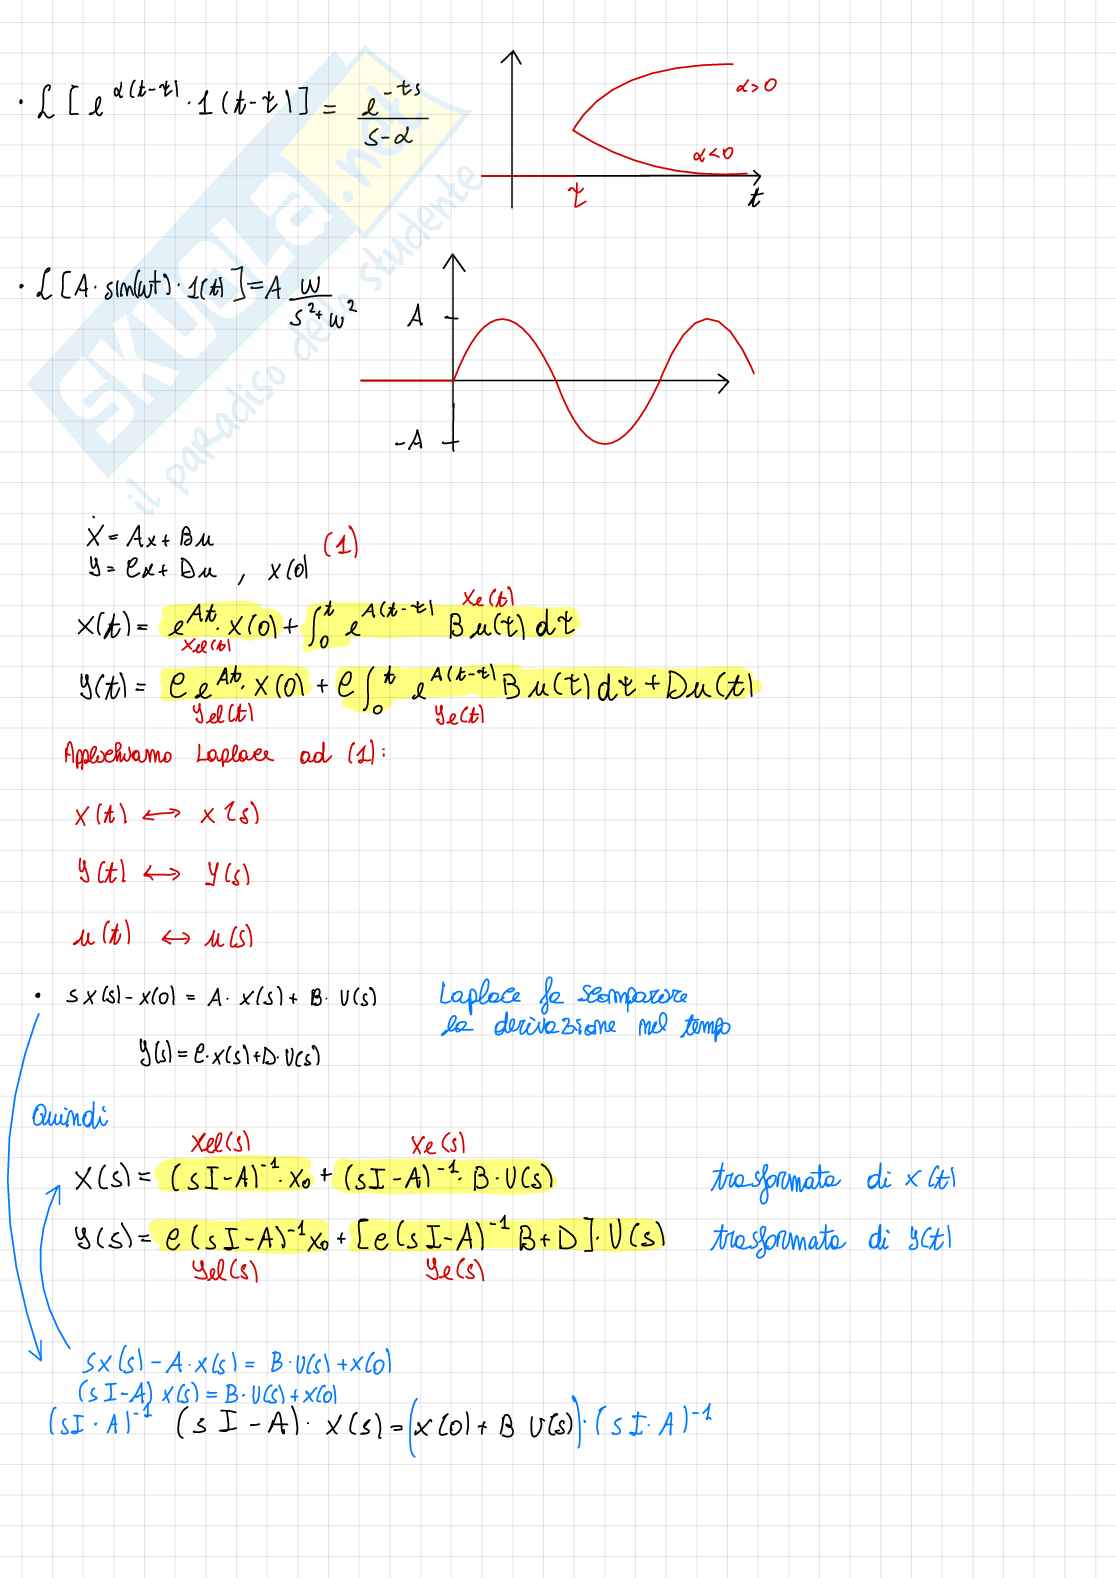 · ℒ[e^{α(t-τ)}·1(t-τ)] = e^{-τs}/(s-α)
α>0
α<0
τ
t
· ℒ[A·sin(ωt)·1(t)] = A ω/(s²+ω²)
A
-A
SKUOLA.net
il paradiso dello studente
ẋ = Ax + Bu
(1)
y = Cx + Du , x(0)
x(t) = e^{At}·x(0) + ∫₀ᵗ e^{A(t-τ)} B u(τ) dτ
xel(t)
xe(t)
y(t) = C e^{At}·x(0) + C ∫₀ᵗ e^{A(t-τ)} B u(τ) dτ + Du(t)
yel(t)
ye(t)
Applichiamo Laplace ad (1):
x(t) ↔ x(s)
y(t) ↔ y(s)
u(t) ↔ u(s)
· sx(s) - x(0) = A·x(s) + B·U(s)
Laplace fa scomparire
la derivazione nel tempo
y(s) = C·x(s) + D·U(s)
Quindi
xel(s)
xe(s)
x(s) = (sI-A)⁻¹·x₀ + (sI-A)⁻¹·B·U(s)
trasformata di x(t)
y(s) = C(sI-A)⁻¹x₀ + [C(sI-A)⁻¹B+D]·U(s)
trasformata di y(t)
yel(s)
ye(s)
sx(s) - A·x(s) = B·U(s) + x(0)
(sI-A) x(s) = B·U(s) + x(0)
(sI·A)⁻¹ (sI-A)·x(s) = (x(0) + B U(s))·(sI·A)⁻¹